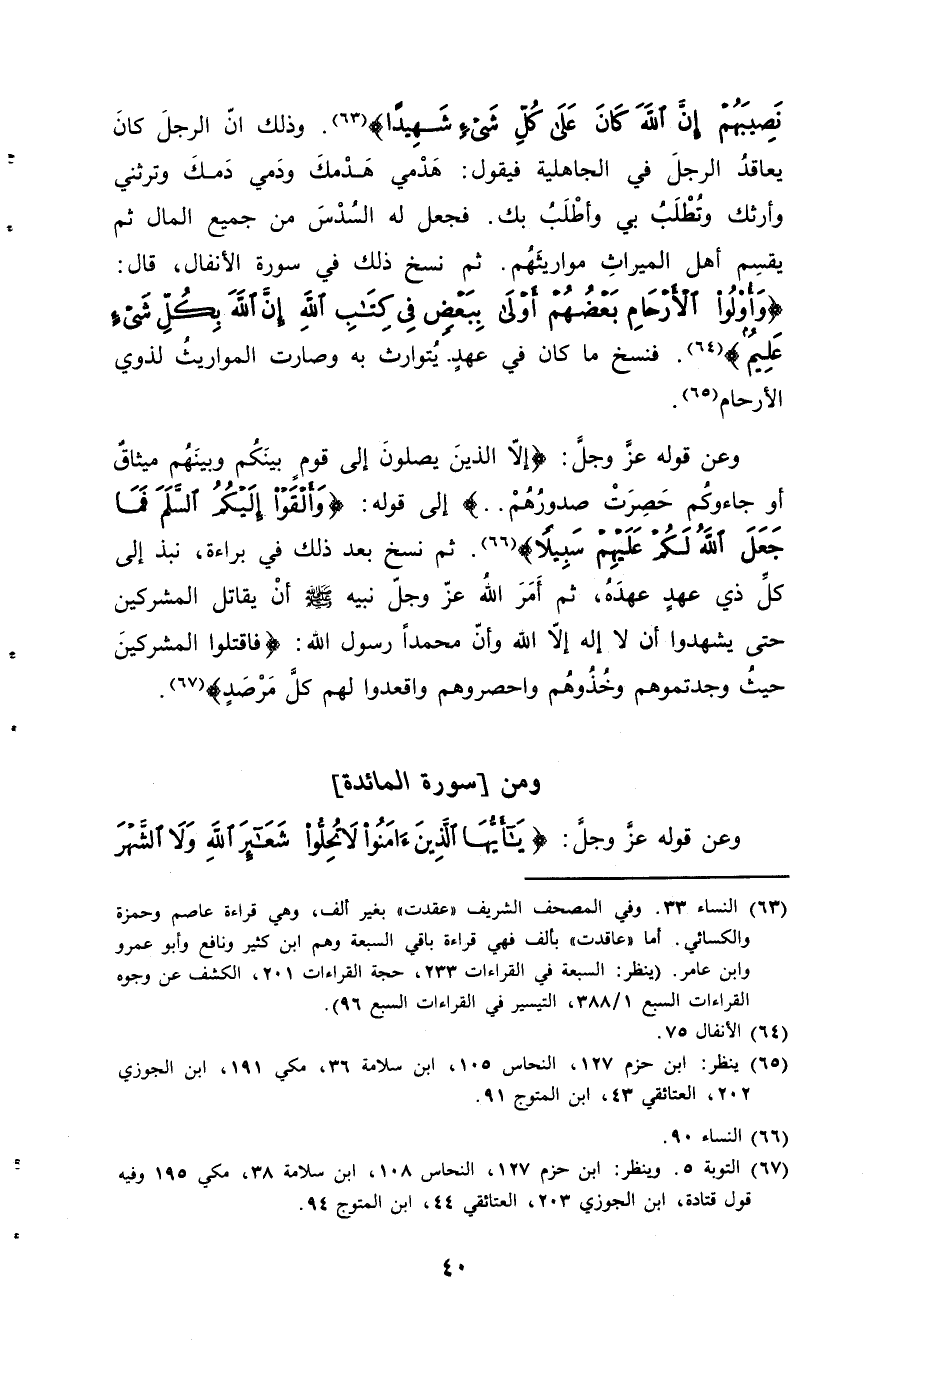 نَصِيبَهُمْ إِنَّ ٱللَّهَ كَانَ عَلَىٰ كُلِّ شَىْءٍ شَهِيدًا﴾(٦٣). وذلك انّ الرجلَ كانَ
يعاقدُ الرجلَ في الجاهلية فيقول: هَدْمي هَدْمكَ ودَمي دَمكَ وترثني
وأرثك وتُطْلَبُ بي وأطْلَبُ بك. فجعل له السُدْسَ من جميع المال ثم
يقسِم أهل الميراثِ مواريثَهُم. ثم نسخ ذلك في سورة الأنفال، قال:
﴿وَأُوْلُواْ ٱلْأَرْحَامِ بَعْضُهُمْ أَوْلَىٰ بِبَعْضٍ فِى كِتَٰبِ ٱللَّهِ إِنَّ ٱللَّهَ بِكُلِّ شَىْءٍ
عَلِيمٌ﴾(٦٤). فنسخ ما كان في عهدٍ يُتوارث به وصارت المواريثُ لذوي
الأرحام(٦٥).
وعن قوله عزَّ وجلَّ: ﴿إلّا الذينَ يصلونَ إلى قومٍ بينَكُم وبينَهُم ميثاقٌ
أو جاءوكُم حَصِرَتْ صدورُهُمْ..﴾ إلى قوله: ﴿وَأَلْقَوْاْ إِلَيْكُمُ ٱلسَّلَمَ فَمَا
جَعَلَ ٱللَّهُ لَكُمْ عَلَيْهِمْ سَبِيلًا﴾(٦٦). ثم نسخ بعد ذلك في براءة، نبذ إلى
كلِّ ذي عهدٍ عهدَهُ، ثم أَمَرَ اللهُ عزّ وجلّ نبيه ﷺ أنْ يقاتل المشركين
حتى يشهدوا أن لا إله إلّا الله وأنّ محمداً رسول الله: ﴿فاقتلوا المشركينَ
حيثُ وجدتموهم وخُذُوهُم واحصروهم واقعدوا لهم كلَّ مَرْصَدٍ﴾(٦٧).
ومن [سورة المائدة]
وعن قوله عزَّ وجلَّ: ﴿يَٰٓأَيُّهَا ٱلَّذِينَ ءَامَنُواْ لَا تُحِلُّواْ شَعَٰٓئِرَ ٱللَّهِ وَلَا ٱلشَّهْرَ
(٦٣) النساء ٣٣. وفي المصحف الشريف «عقدت» بغير ألف، وهي قراءة عاصم وحمزة
والكسائي. أما «عاقدت» بألف فهي قراءة باقي السبعة وهم ابن كثير ونافع وأبو عمرو
وابن عامر. (ينظر: السبعة في القراءات ٢٣٣، حجة القراءات ٢٠١، الكشف عن وجوه
القراءات السبع ٣٨٨/١، التيسير في القراءات السبع ٩٦).
(٦٤) الأنفال ٧٥.
(٦٥) ينظر: ابن حزم ١٢٧، النحاس ١٠٥، ابن سلامة ٣٦، مكي ١٩١، ابن الجوزي
٢٠٢، العتائقي ٤٣، ابن المتوج ٩١.
(٦٦) النساء ٩٠.
(٦٧) التوبة ٥. وينظر: ابن حزم ١٢٧، النحاس ١٠٨، ابن سلامة ٣٨، مكي ١٩٥ وفيه
قول قتادة، ابن الجوزي ٢٠٣، العتائقي ٤٤، ابن المتوج ٩٤.
٤٠